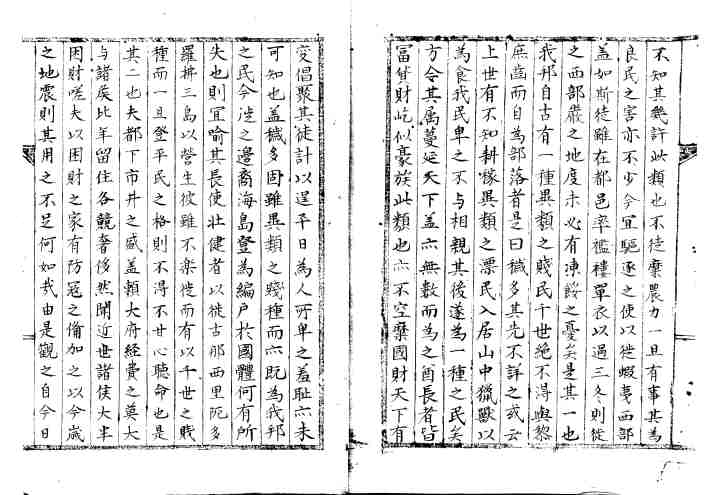 不知其幾許此類也不徒糜農力一旦有事其為
良民之害亦不少今宜驅逐之使以徙蝦夷西部
盖如斯徒雖在都邑率襤褸單衣以過三冬則徙
之西部嚴之地度未必有凍餒之憂矣是其一也
我邦自古有一種異類之賤民千世絶不得與黎
庶齒而自為部落者是曰穢多其先不詳之或云
上世有不知耕稼異類之漂民入居山中獵獸以
為食我民卑之不与相親其後遂為一種之民矣
方今其属蔓延天下盖亦無數而為之酋長者皆
富貲財屹似豪族此類也亦不空糜國財天下有
変倡聚其徒計以逞平日為人所卑之羞恥亦未
可知也盖穢多固雖異類之賤種而亦既為我邦
之民今徙之邊裔海島登為編户於國體何有所
失也則宜喻其長使壮健者以徙古那西里厄多
羅拂三島以營生彼雖不樂徙而有以千世之賤
種而一旦登平民之格則不得不甘心聴命也是
其二也夫都下市井之盛盖頼大府経費之莫大
与諸矦比年留住各競奢侈然聞近世諸侯大半
困財嗟夫以困財之家有防冦之俻加之以今歳
之地震則其用之不足何如哉由是觀之自今日